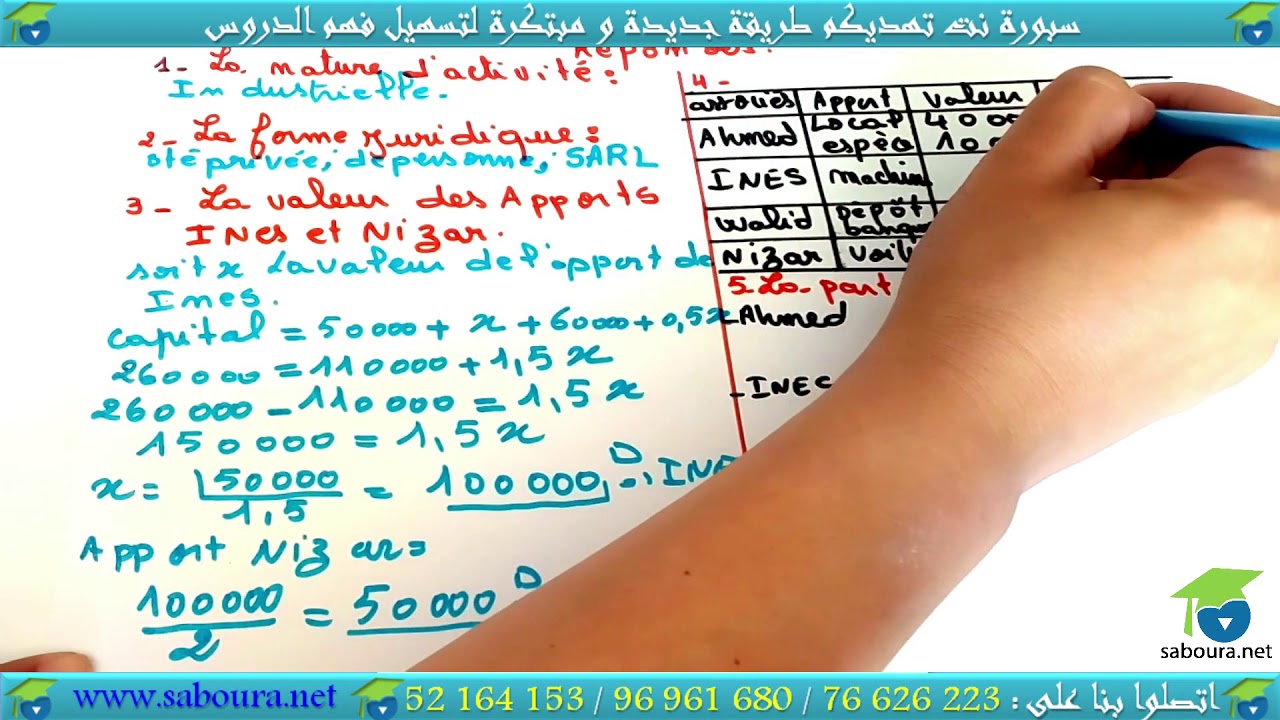 سبورة نت تهديكم طريقة جديدة و مبتكرة لتسهيل فهم الدروس
Réponses:
1- La nature d'activité:
Industrielle.
2- La forme juridique:
sté privée, de personne, SARL
3- La valeur des Apports
INes et Nizar.
soit x la valeur de l'apport de
Ines.
capital = 50 000 + x + 60000 + 0,5x
260 000 = 110000 + 1,5 x
260 000 - 110 000 = 1,5 x
150 000 = 1,5 x
x = 150000 / 1,5 = 100 000 D
Apport Nizar =
100000 / 2 = 50 000 D
4-
associés Apport Valeur
Ahmed Local
espèce
INES
Walid Dépôt
Nizar
5. La part
- Ahmed
saboura.net
www.saboura.net
52 164 153 / 96 961 680 / 76 626 223 : اتصلوا بنا على